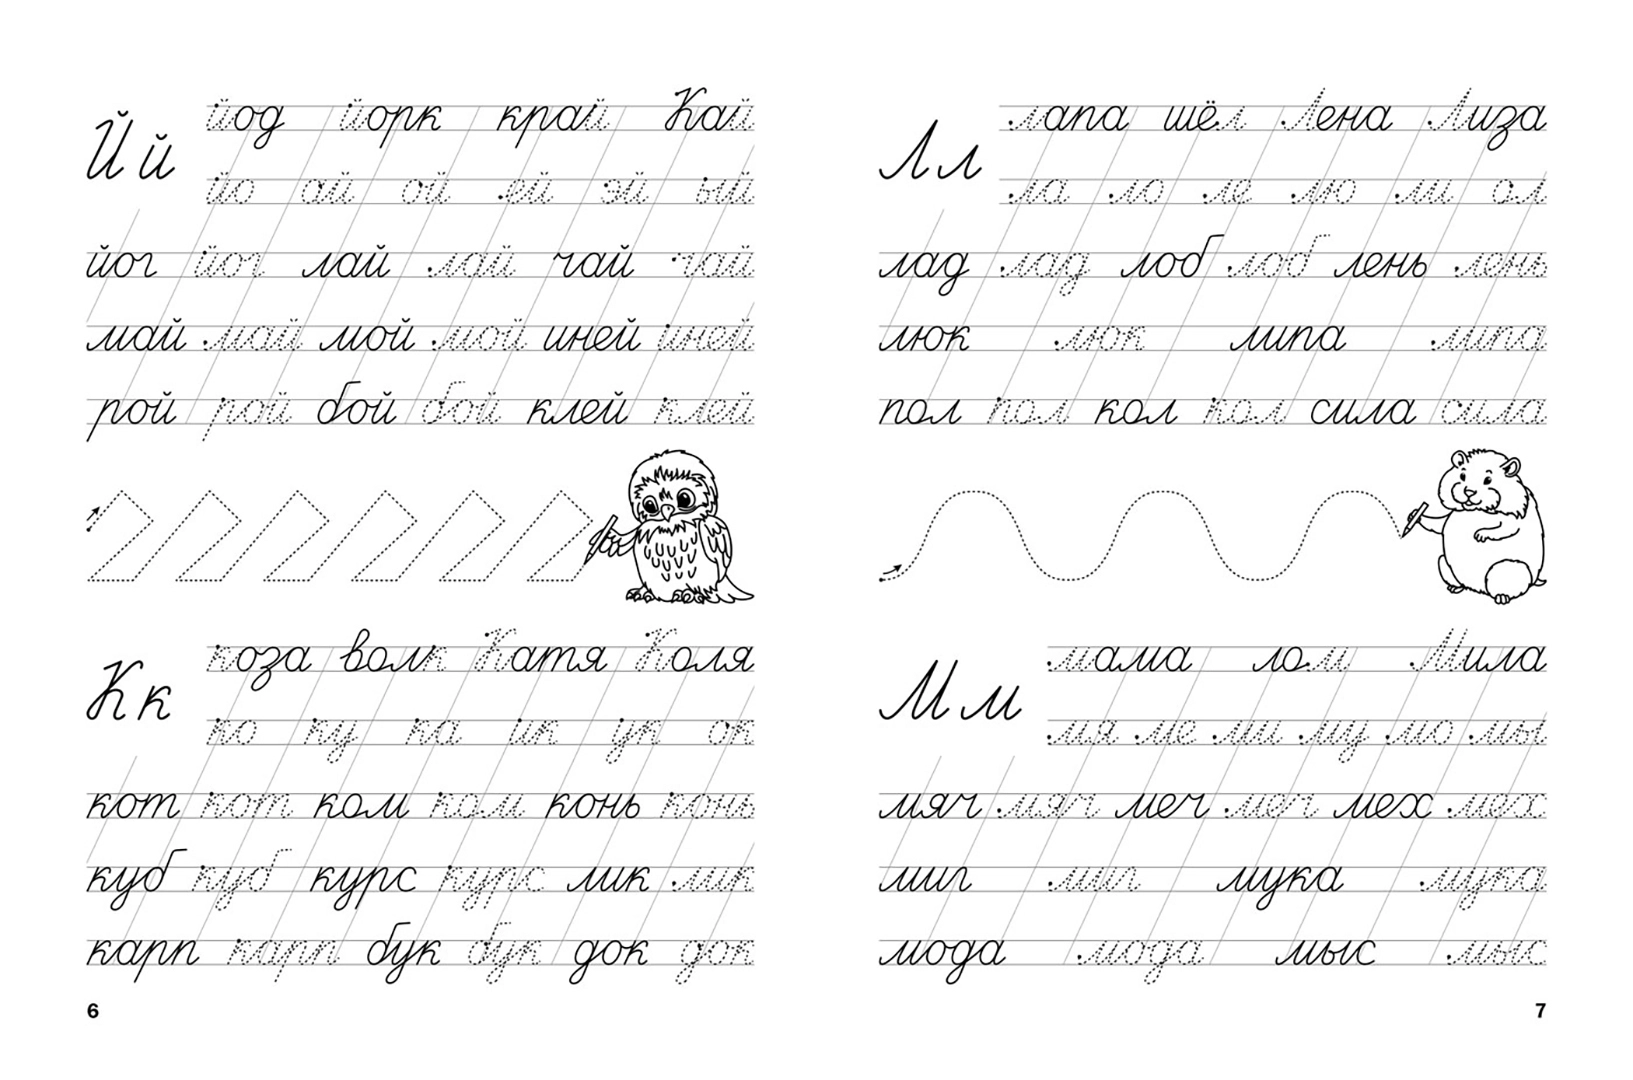 Й й
йод йорк край Кай
йо ай ой ей эй ый
йог йог лай лай чай чай
май май мой мой иней иней
рой рой бой бой клей клей
К к
коза волк Катя Коля
ко ку ка ик ук ок
кот кот ком ком конь конь
куб куб курс курс лик лик
карп карп бук бук док док
6
Л л
лапа шёл Лена Лиза
ла ло ле лю ли ол
лад лад лоб лоб лень лень
люк люк липа липа
пол пол кол кол сила сила
М м
мама лом Мила
мя ме ми му мо мы
мяч мяч меч меч мех мех
миг миг мука мука
мода мода мыс мыс
7